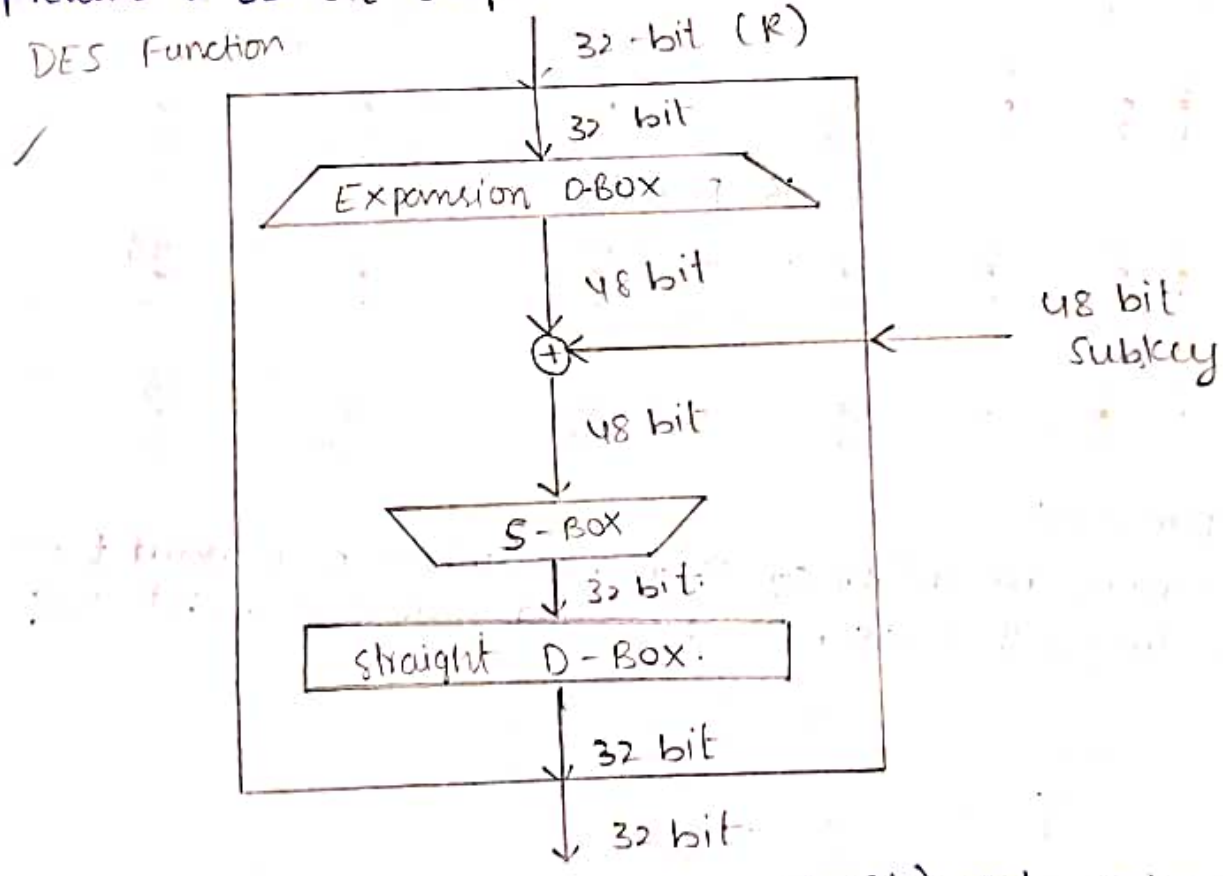 DES Function
32-bit (R)
32 bit
Expansion D-BOX
48 bit
48 bit
subkey
48 bit
S-BOX
32 bit
straight D-BOX.
32 bit
32 bit